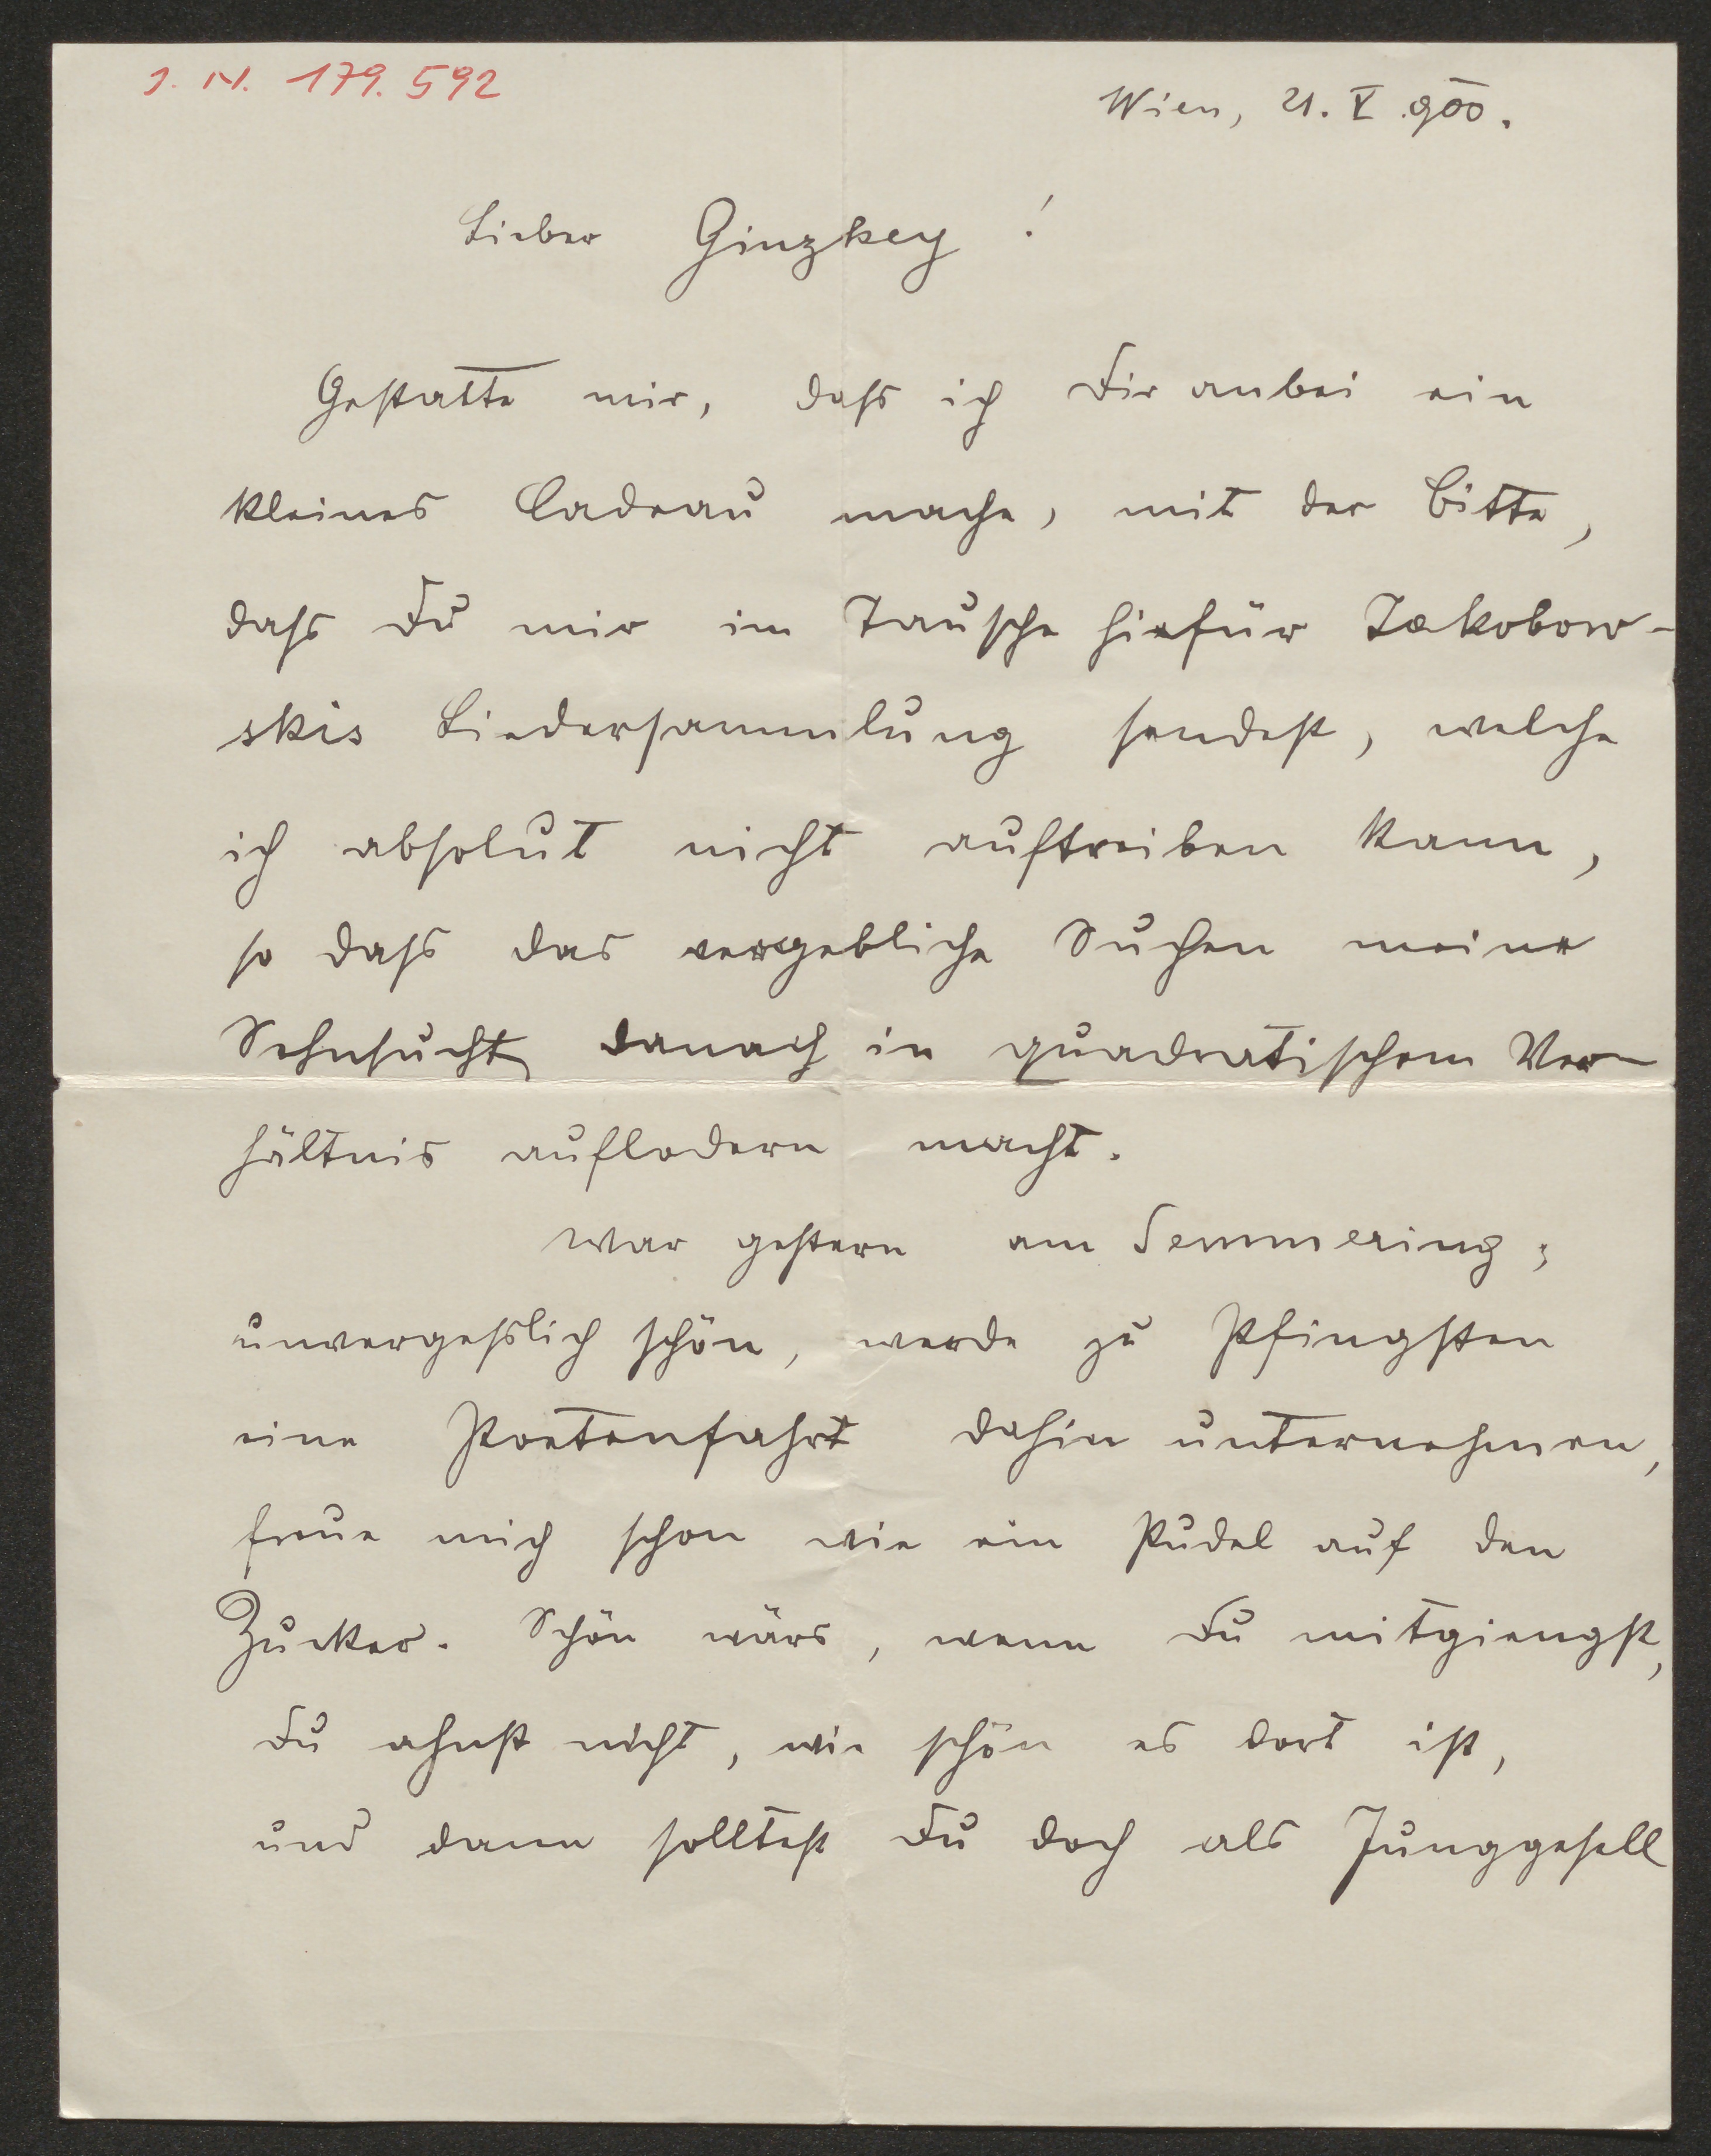 J. N. 179.592
Wien, 21. V. 900.
Lieber Ginzkey!
Gestatte mir, dass ich Dir anbei ein
kleines Cadeau mache, mit der Bitte,
dass Du mir im Tausche hiefür Jakobow-
skis Liedersammlung sendest, welche
ich absolut nicht auftreiben kann,
so dass das vergebliche Suchen meine
Sehnsucht danach in quadratischem Ver-
hältnis auflodern macht.
War gestern am Semmering;
unvergesslich schön, werde zu Pfingsten
eine Poetenfahrt dahin unternehmen,
freue mich schon wie ein Pudel auf den
Zucker. Schön wärs, wenn Du mitgiengst,
Du ahnst nicht, wie schön es dort ist,
und dann solltest Du doch als Junggesell